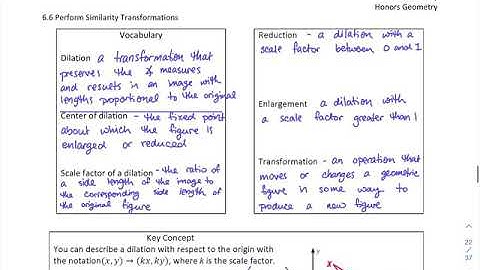 Honors Geometry
6.6 Perform Similarity Transformations
Vocabulary
Dilation a transformation that
preserves the ∡ measures
and results in an image with
lengths proportional to the original
Center of dilation - the fixed point
about which the figure is
enlarged or reduced
Scale factor of a dilation - the ratio of
a side length of the image to
the corresponding side length of
the original figure
Reduction - a dilation with a
scale factor between 0 and 1
Enlargement a dilation with
a scale factor greater than 1
Transformation - an operation that
moves or changes a geometric
figure in some way to
produce a new figure
Key Concept
You can describe a dilation with respect to the origin with
the notation (x, y) → (kx, ky), where k is the scale factor.
y
22
37